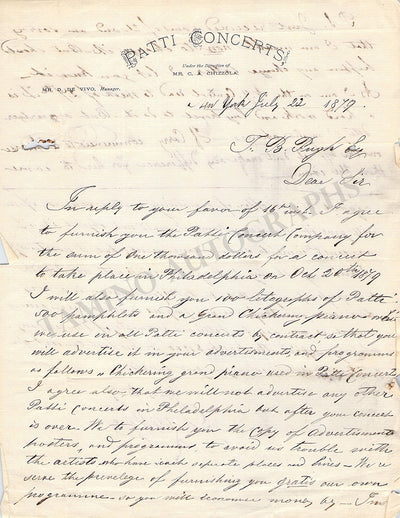 PATTI CONCERTS
Under the Direction of
MR. C. A. CHIZZOLA.
MR. D. DE VIVO, Manager.
New York July 22 1879.
T. B. Pugh Esq
Dear Sir
In reply to your favor of 16th inst. I agree
to furnish you the Patti Concert Company for
the sum of One thousand dollars for a concert
to take place in Philadelphia on Oct 20th 1879
I will also furnish you 100 litographs of Patti
500 pamphlets and a Grand Chickering piano which
we use in all Patti concerts by contract so that you
will advertise it in your advertisements, and programmes
as follows "a Chickering grand piano used in Patti Concerts
I agree also, that we will not advertise any other
Patti Concerts in Philadelphia but after your concert
is over. We to furnish you the Copy of Advertisements
posters, and programme to avoid us trouble with
the artists who have each separate places and lines - We re
serve the privelege of furnishing you gratis our own
programme - so you will economer money by - I'm
TAMINO AUTOGRAPHS